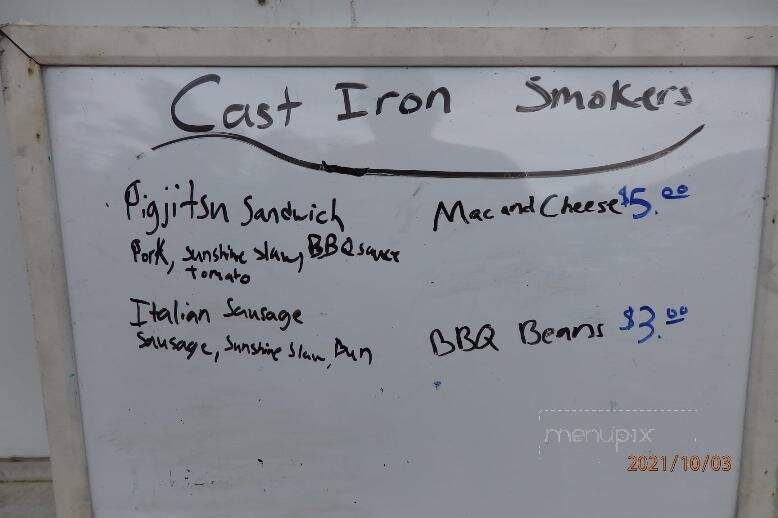 Cast Iron Smokers
Pigjitsu Sandwich
Pork, sunshine slaw, BBQ sauce
tomato
Italian Sausage
Sausage, Sunshine Slaw, Bun
Mac and Cheese $5.00
BBQ Beans $3.00
menupix
2021/10/03